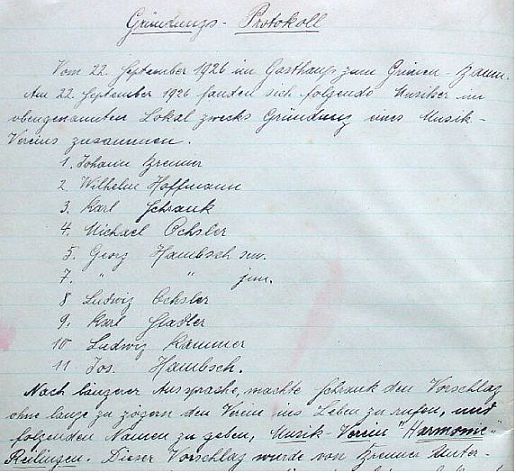 Gründungs-Protokoll
Vom 22. September 1926 im Gasthaus zum Grünen-Baum.
Am 22. September 1926 fanden sich folgende Musiker im
obengenannten Lokal zwecks Gründung eines Musik-
Vereins zusammen.
1. Johann Brenner
2. Wilhelm Hoffmann
3. Karl Schrank
4. Michael Ochsler
5. Georg Hambsch sen.
7. " " jun.
8 Ludwig Ochsler
9. Karl
10 Ludwig Kammer
11 Jos. Hambsch.
Nach längerer Aussprache, machte Schrank den Vorschlag
ohne lange zu zögern den Verein ins Leben zu rufen, und
folgenden Namen zu geben, Musik-Verein "Harmonie"
Reilingen. Dieser Vorschlag wurde von Brenner unter-